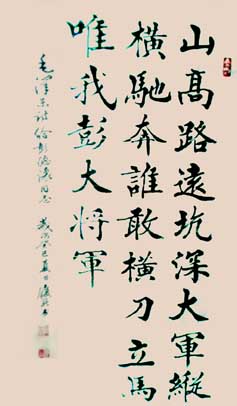 山高路遠坑深大軍縱
橫馳奔誰敢橫刀立馬
唯我彭大將軍
毛澤東詩給彭德懷同志 歲次癸巳夏日